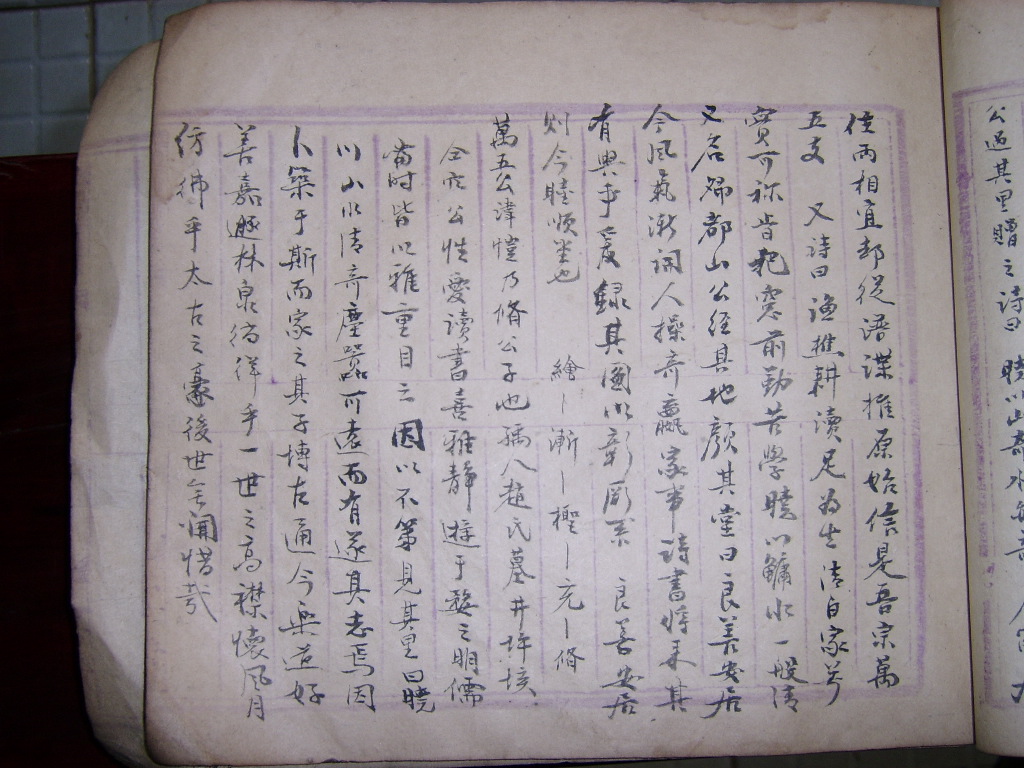 公過其里贈之詩曰 曉川山奇水
住両相宜却從語諜推原始信是吾宗萬
五支 又詩曰漁樵耕讀足為生清白家芳
寳可称皆把窓前勤苦學曉川鱅水一般清
又名歸都山公經其地顏其堂曰良善安居
今風氣漸調人操奇贏家事詩書將来其
有興乎爰録其圖以彰
良善安居
则今睦順堂也 繪丨漸丨㮚丨充丨脩
萬五公諱愷乃脩公子也孺人趙氏墓井垟垓
公性愛讀書喜雅靜遊于婺之明儒
當時皆以雅重目之因以不第見其里曰曉
川山水清奇塵囂可遠而有遂其志焉因
卜築于斯而家之其子博古通今樂道好
善嘉遯林泉徜徉乎一世之高襟懷風月
彷彿乎太古之豪後世無聞惜哉